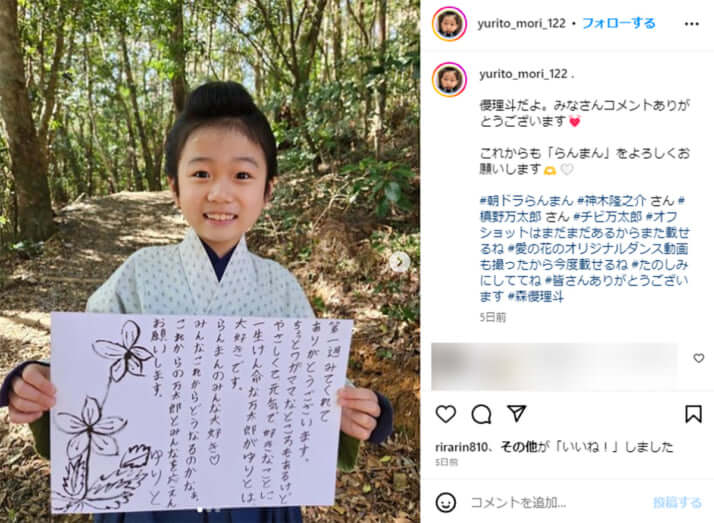 第一週みてくれて
ありがとうございます。
ちょっとワガママなところもあるけど
やさしくて元気で好きなことに
一生けん命な万太郎がゆりとは
大好きです。
らんまんのみんな大好き♡
みんなこれからどうなるのかなぁ。
これからの万太郎とみんなをおうえん
お願いします。
ゆりと
yurito_mori_122 • フォローする
yurito_mori_122 .
優理斗だよ。みなさんコメントありが
とうございます💓
これからも「らんまん」をよろしくお
願いします🫶♡
#朝ドラらんまん #神木隆之介 さん #
槙野万太郎 さん #チビ万太郎 #オフ
ショットはまだまだあるからまた載せ
るね #愛の花のオリジナルダンス動画
も撮ったから今度載せるね #たのしみ
にしててね #皆さんありがとうござい
ます #森優理斗
5日前
rirarin810、その他が「いいね！」しました
5日前
コメントを追加...
投稿する